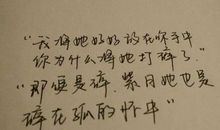 “我将她好好放在你手中
你为什么将她打碎了.”
“即便是碎.紫月她也是
碎在孤的怀中”